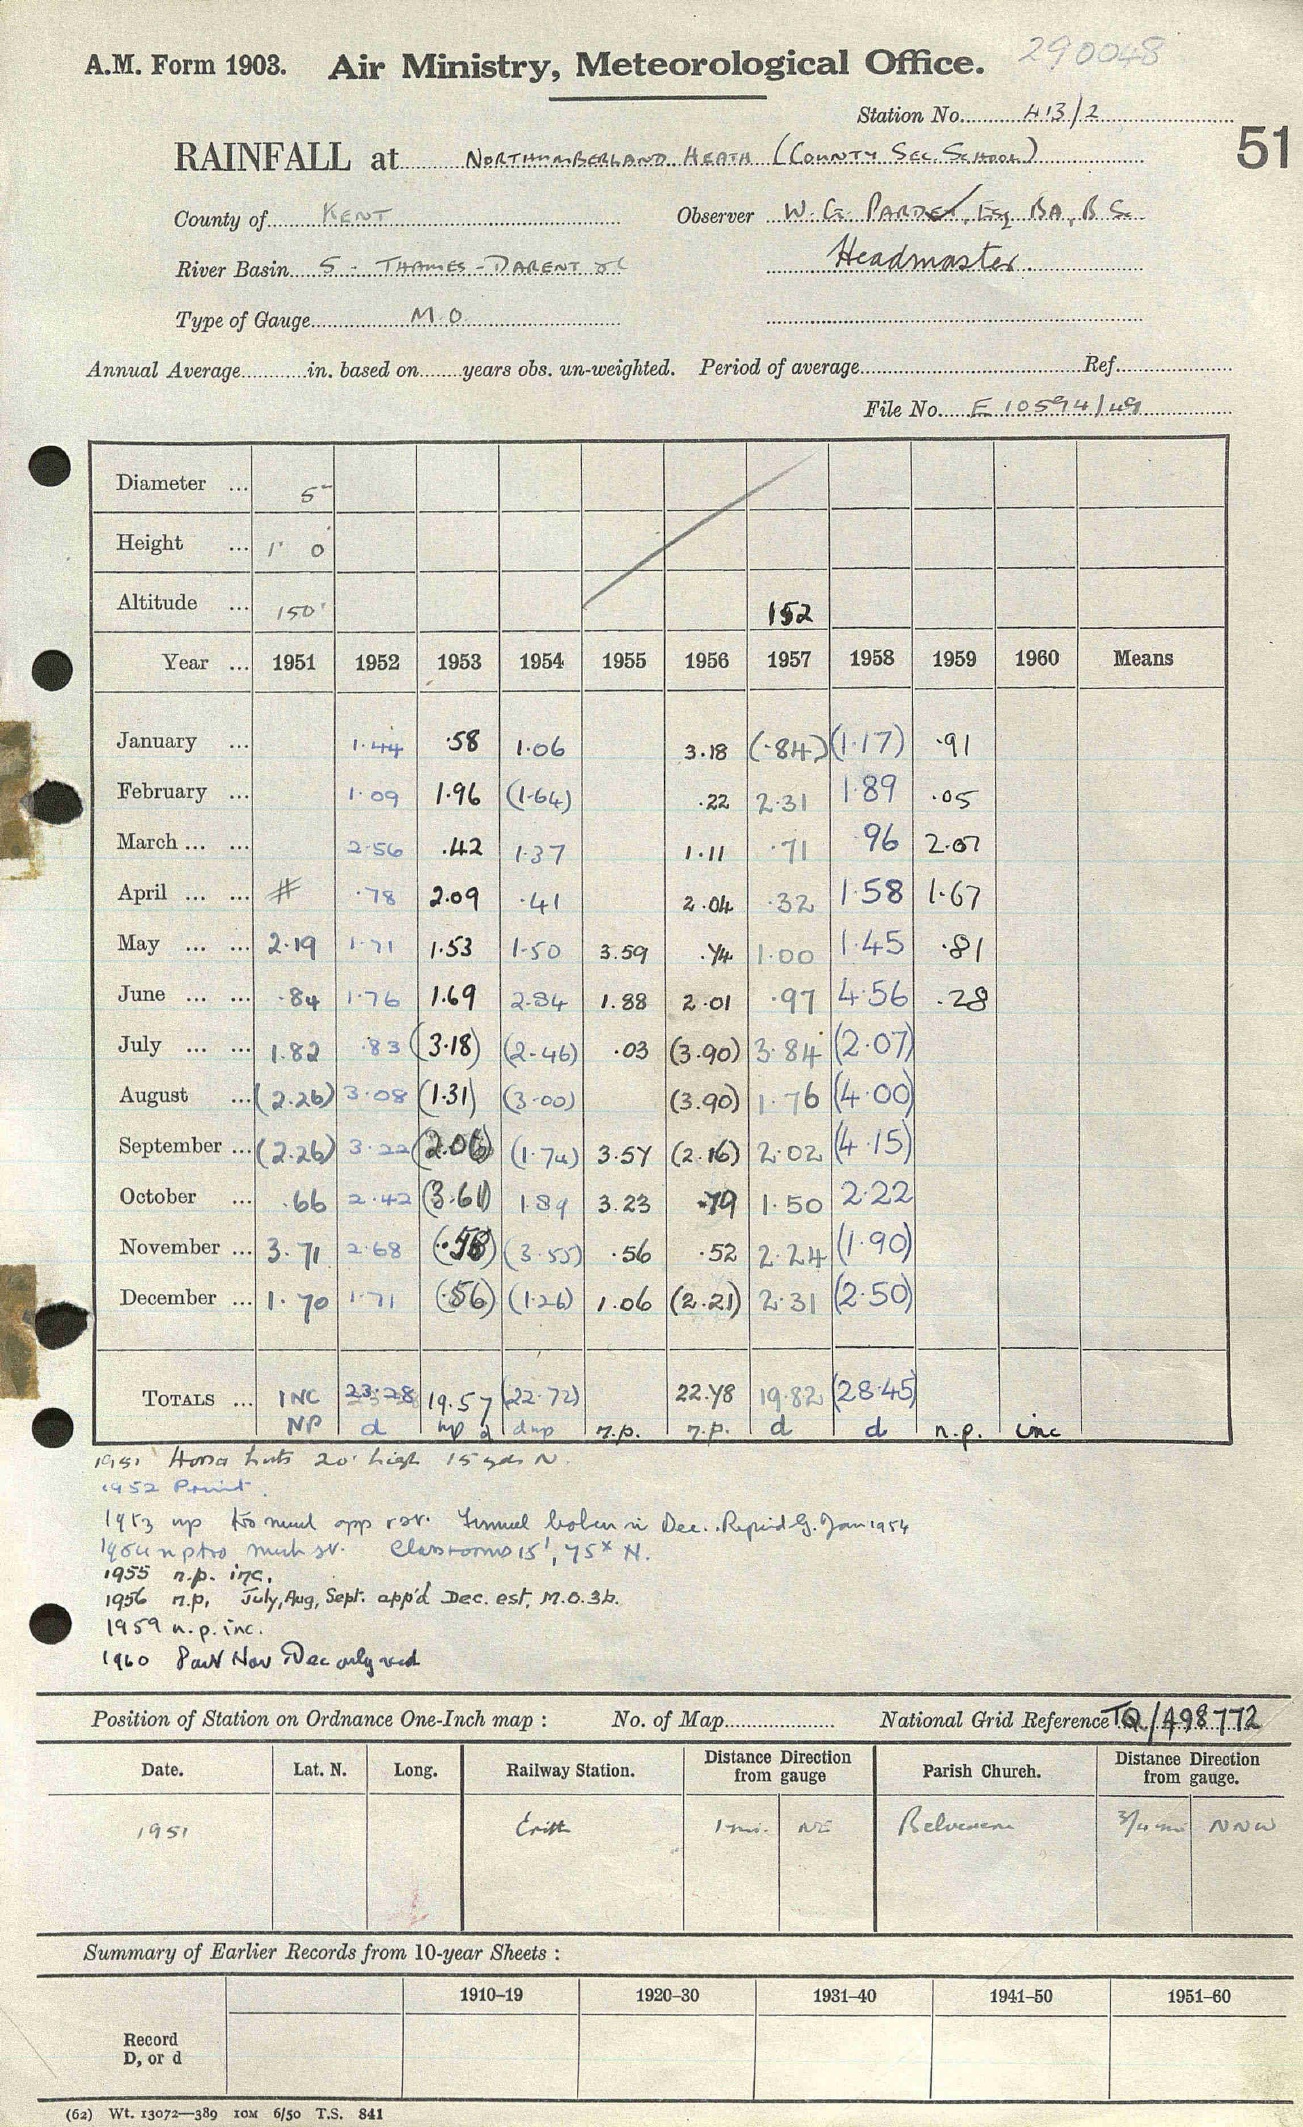 290048
A.M. Form 1903. Air Ministry, Meteorological Office.
Station No. 413/2
51
RAINFALL at NORTHUMBERLAND HEATH (COUNTY SEC. SCHOOL)
County of KENT Observer W. G. PARDEY, Esq BA, B Sc
River Basin 5 - THAMES - DARENT &c Headmaster.
Type of Gauge M.O.
Annual Average in. based on years obs. un-weighted. Period of average Ref.
File No. E 10594/49
Diameter ... 5"
Height ... 1' 0"
Altitude ... 150' 152
Year ... 1951 1952 1953 1954 1955 1956 1957 1958 1959 1960 Means
January ... 1.44 .58 1.06 3.18 (.84) (1.17) .91
February ... 1.09 1.96 (1.64) .22 2.31 1.89 .05
March ... ... 2.56 .42 1.37 1.11 .71 .96 2.07
April ... ... # .78 2.09 .41 2.04 .32 1.58 1.67
May ... ... 2.19 1.71 1.53 1.50 3.59 .74 1.00 1.45 .81
June ... ... .84 1.76 1.69 2.84 1.88 2.01 .97 4.56 .28
July ... ... 1.82 .83 (3.18) (2.46) .03 (3.90) 3.84 (2.07)
August ... (2.26) 3.08 (1.31) (3.00) (3.90) 1.76 (4.00)
September ... (2.26) 3.22 (2.06) (1.74) 3.57 (2.16) 2.02 (4.15)
October ... .66 2.42 (3.61) 1.89 3.23 .79 1.50 2.22
November ... 3.71 2.68 (.58) (3.55) .56 .52 2.24 (1.90)
December ... 1.70 1.71 (.56) (1.26) 1.06 (2.21) 2.31 (2.50)
TOTALS ... INC 23.28 19.57 (22.72) 22.78 19.82 (28.45)
NP d np d dnp n.p. n.p. d d n.p. inc
1951 Horsa huts 20' high 15 yds N.
1952 Print.
1953 np too much app rdr. Funnel broken in Dec. Repaired Jan 1954
1954 np too much st. Classrooms 15', 75x N.
1955 n.p. inc.
1956 n.p. July, Aug, Sept. app'd Dec. est, M.O.3b.
1959 n.p. inc.
1960 Part Nov Dec only recd
Position of Station on Ordnance One-Inch map : No. of Map National Grid Reference TQ/498772
Date. Lat. N. Long. Railway Station. Distance Direction from gauge Parish Church. Distance Direction from gauge.
1951 Erith 1 mi. NE Belvedere 3/4 mi NNW
Summary of Earlier Records from 10-year Sheets :
1910–19 1920–30 1931–40 1941–50 1951–60
Record
D, or d
(62) Wt. 13072—389 10M 6/50 T.S. 841